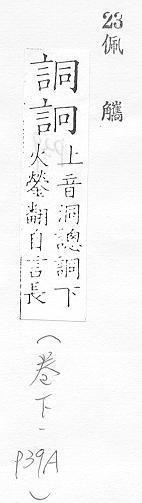 23
佩觿
詷詗
上音洞謥詷下
火熒翻自言長
(卷下-P39A)